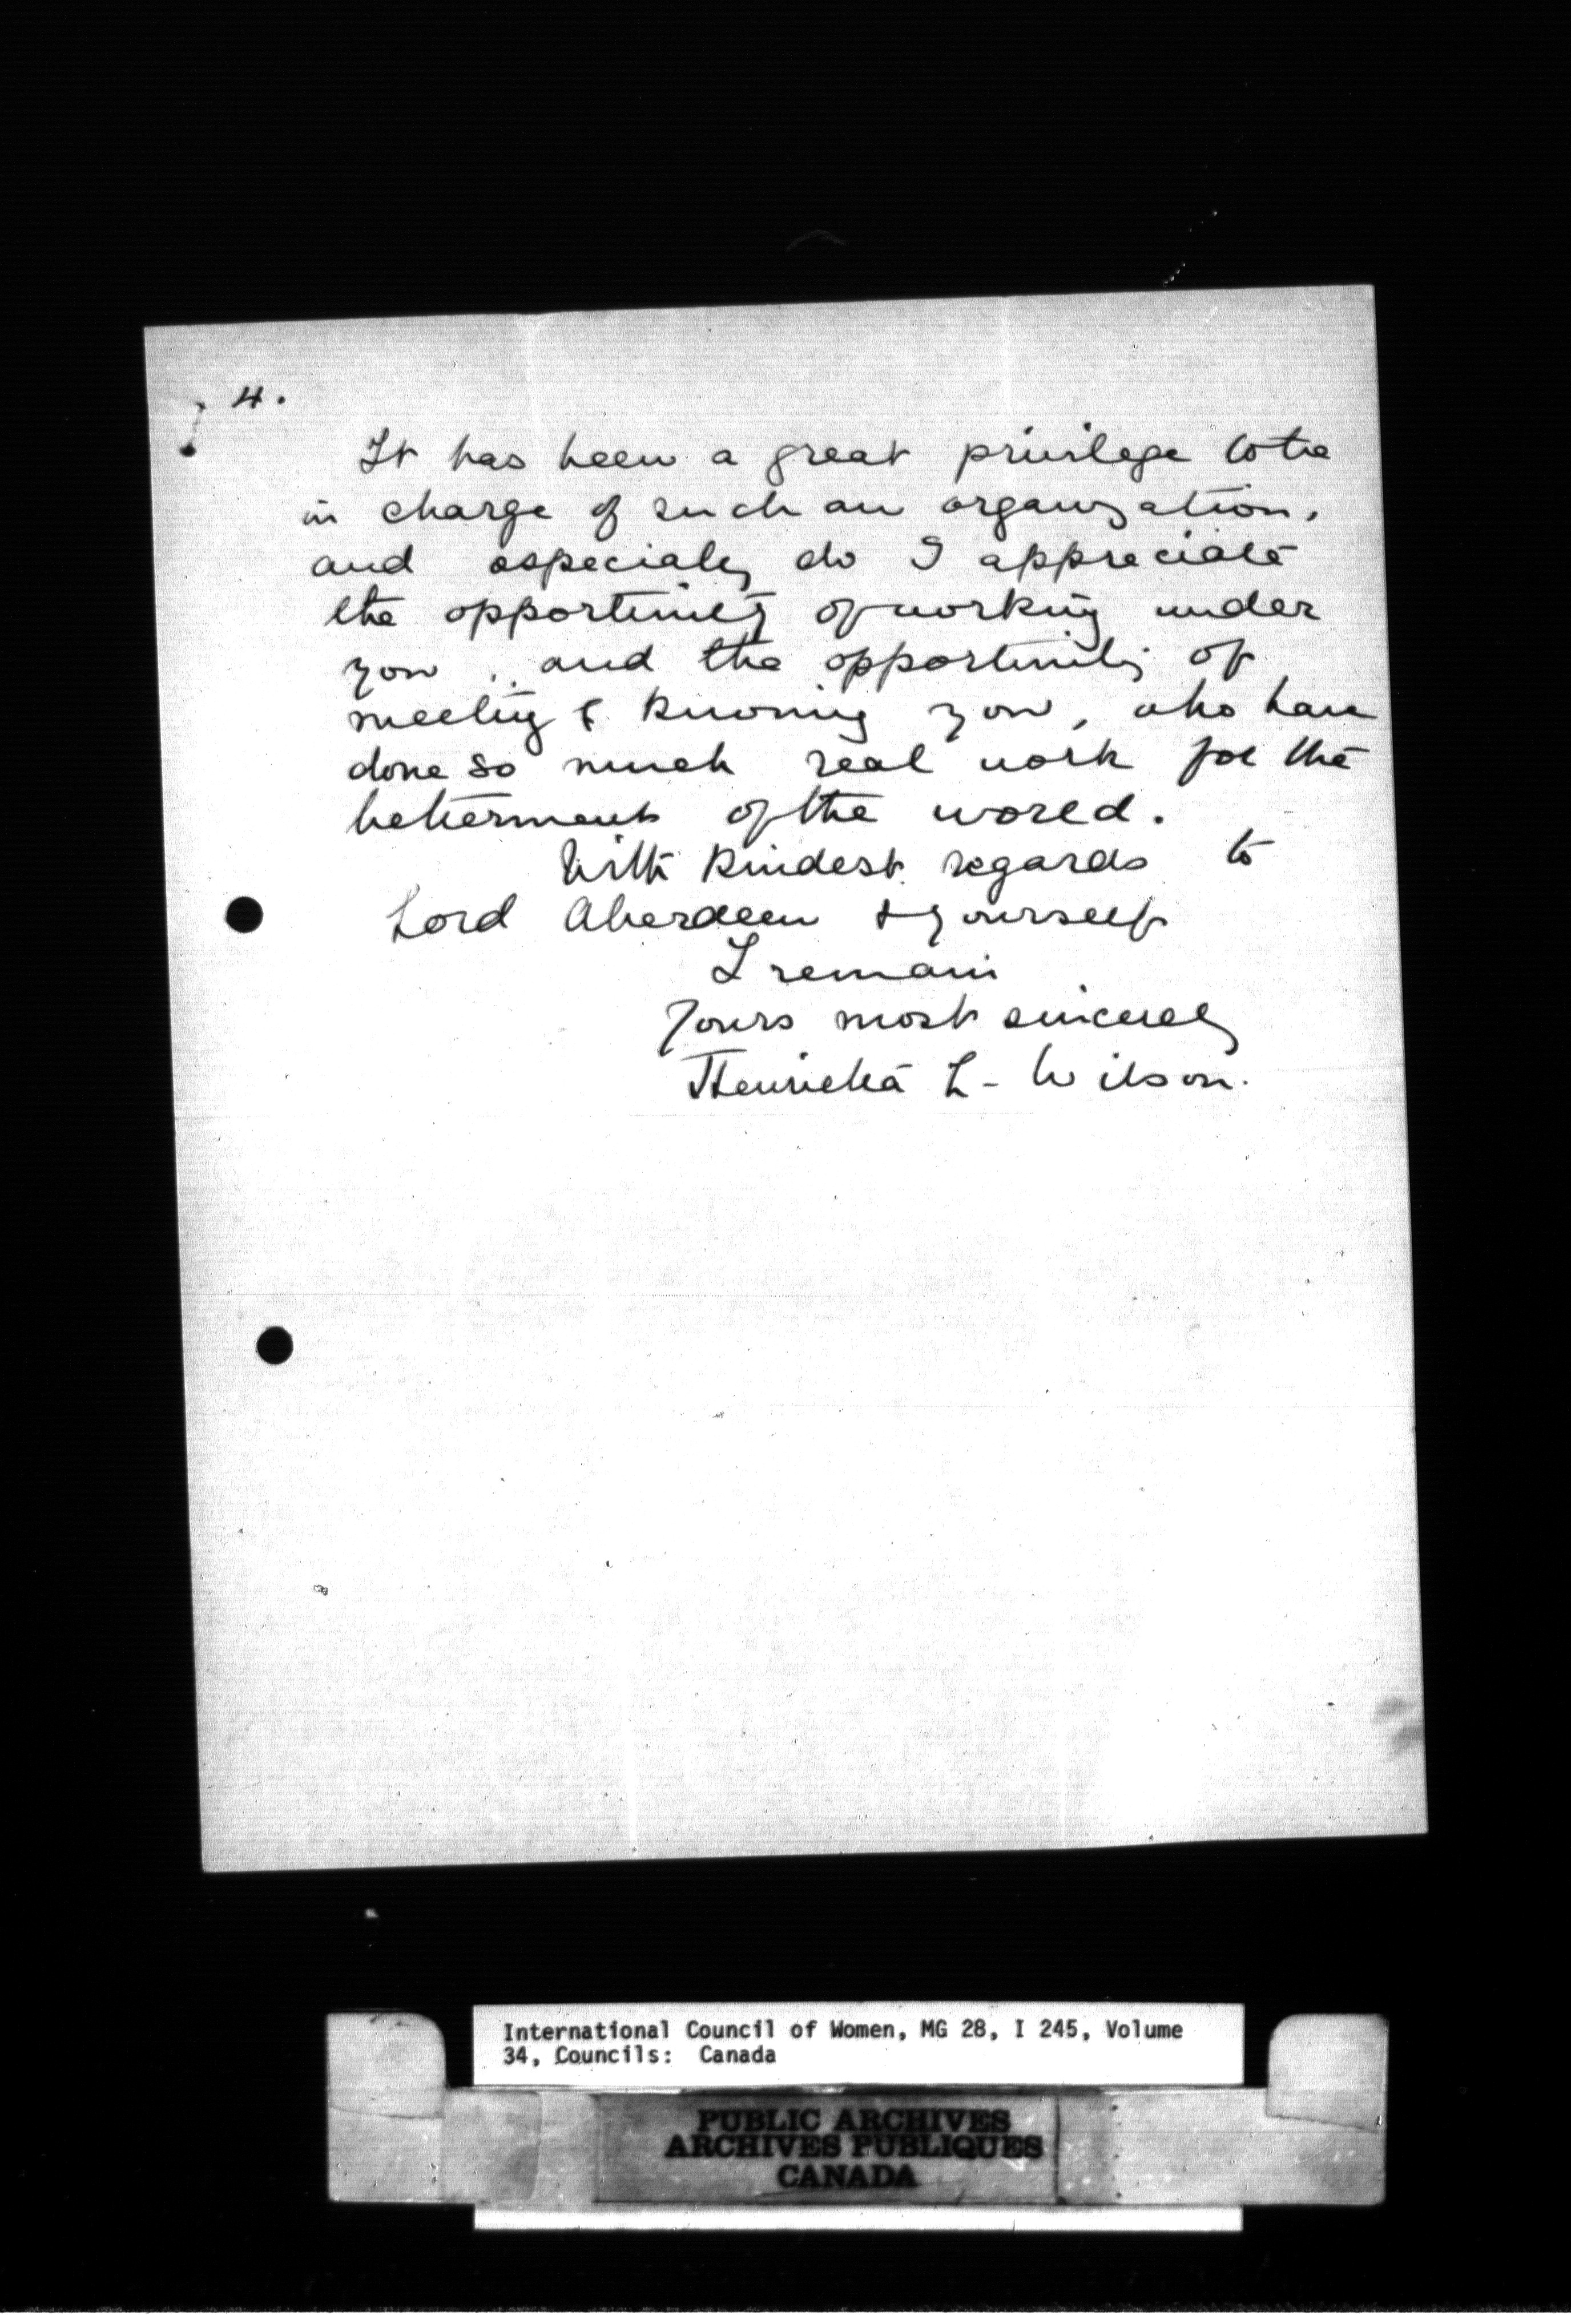 4.
It has been a great privilege to be
in charge of such an organization,
and especialy do I appreciate
the opportunity of working under
you, and the opportunity of
meeting & knowing you, who have
done so much real work for the
betterment of the world.
With kindest regards to
Lord Aberdeen & yourself
I remain
Yours most sincerely
Henrietta L. Wilson.
International Council of Women, MG 28, I 245, Volume
34, Councils: Canada
PUBLIC ARCHIVES
ARCHIVES PUBLIQUES
CANADA